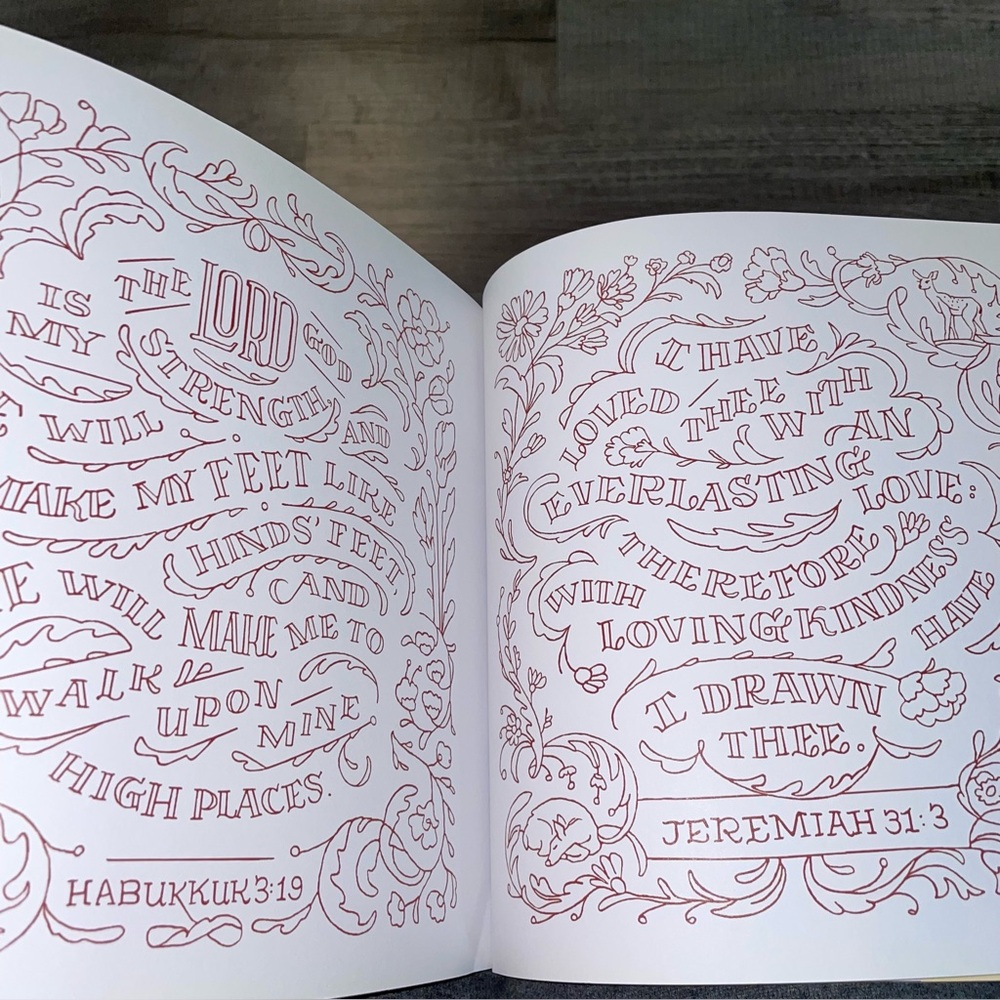 THE LORD GOD
IS MY STRENGTH, AND
WILL
MY FEET LIKE
HINDS' FEET,
AND
WILL MAKE ME TO
WALK UPON MINE
HIGH PLACES.
HABUKKUK 3:19
I HAVE
LOVED THEE WITH
AN
EVERLASTING LOVE:
THEREFORE
WITH
LOVINGKINDNESS
HAVE
I DRAWN
THEE.
JEREMIAH 31:3